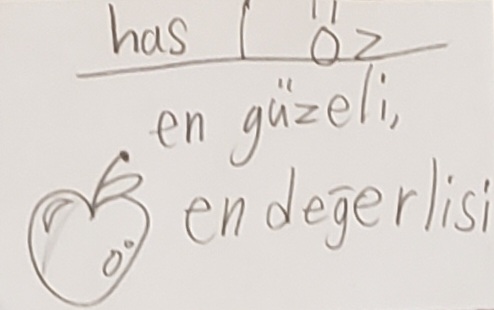 has | öz
en güzeli,
en değerlisi